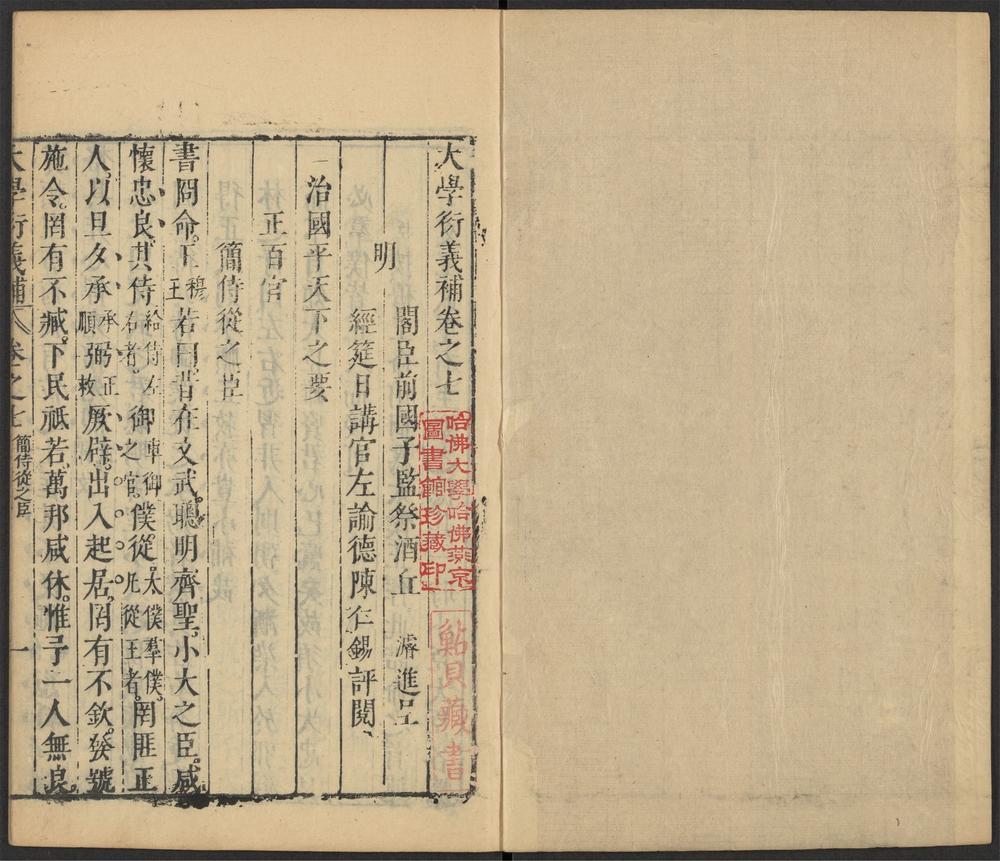 大學衍義補卷之七
明
閣臣前國子監祭酒丘濬進呈
經筵日講官左諭德陳仁錫評閱
治國平天下之要
正百官
簡侍從之臣
書冏命王穆王若曰昔在文武聰明齊聖小大之臣咸
懷忠良其侍給侍左右者御車御之官僕從太僕羣僕凡從王者罔匪正
人以旦夕承承順弼正救厥辟出入起居罔有不欽發號
施令罔有不臧下民祗若萬邦咸休惟予一人無良
大學衍義補 卷之七 簡侍從之臣 一
哈佛大學哈佛燕京
圖書館珍藏印
鮎貝藏書